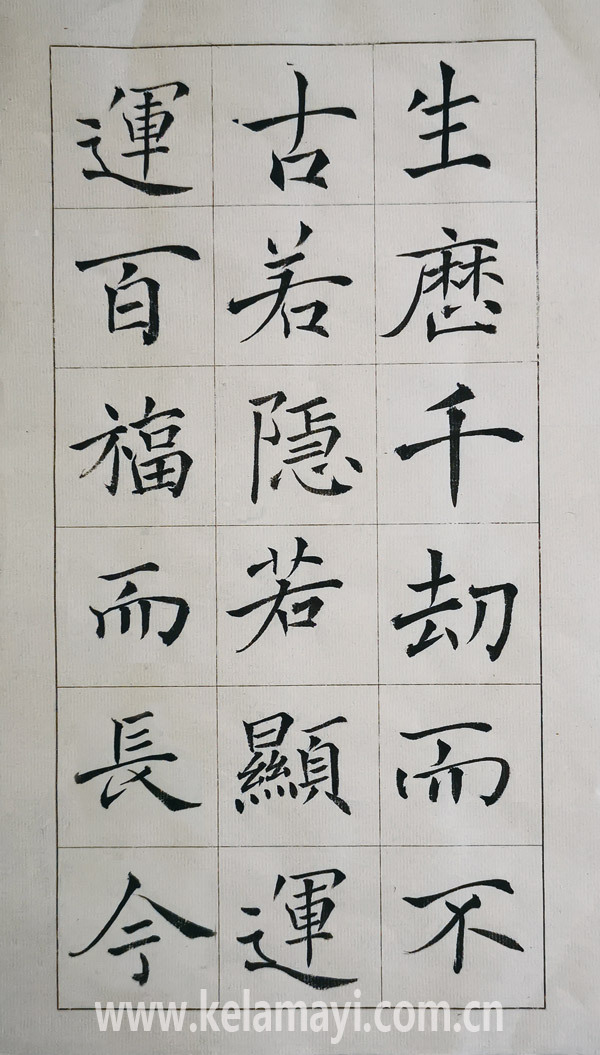 生歷千刧而不
古若隱若顯運
運百福而長今
www.kelamayi.com.cn